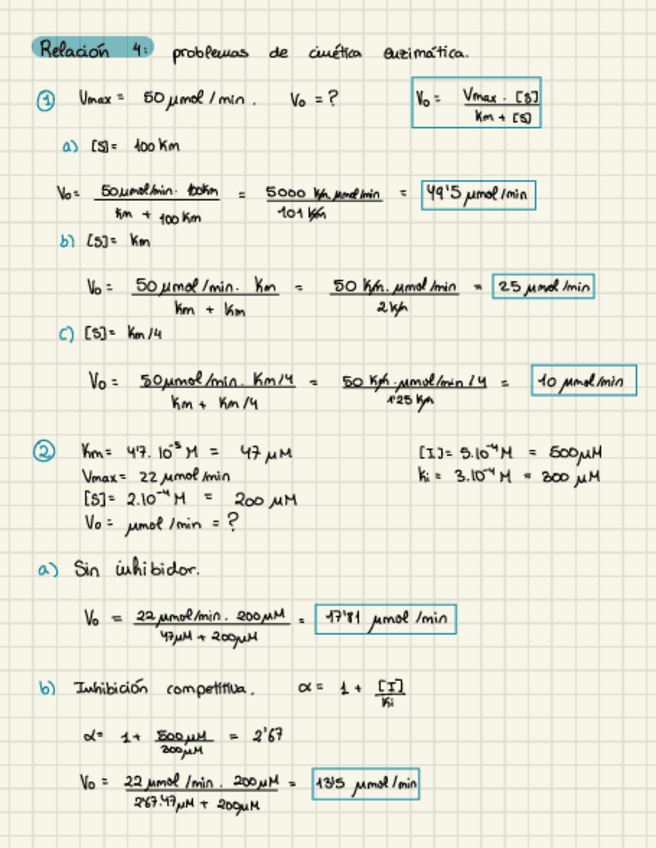 Relación 4: problemas de cinética enzimática.
① Vmax = 50 μmol/min. V₀ = ? V₀ = Vmax · [S] / Km + [S]
a) [S]= 100 Km
V₀ = 50 μmol/min · 100Km / Km + 100 Km = 5000 Km μmol/min / 101 Km = 49'5 μmol/min
b) [S]= Km
V₀ = 50 μmol/min. Km / Km + Km = 50 Km. μmol/min / 2 Km = 25 μmol/min
c) [S]= Km/4
V₀ = 50 μmol/min. Km/4 / Km + Km/4 = 50 Km · μmol/min / 4 / 1'25 Km = 10 μmol/min
② Km = 4'7. 10⁻⁵ M = 47 μM [I]= 5.10⁻⁴ M = 500μM
Vmax = 22 μmol/min Ki = 3.10⁻⁴ M = 300 μM
[S]= 2.10⁻⁴ M = 200 μM
V₀ = μmol/min = ?
a) Sin inhibidor.
V₀ = 22 μmol/min. 200μM / 47μM + 200μM = 17'81 μmol/min
b) Inhibición competitiva. α = 1 + [I] / Ki
α = 1 + 500μM / 300μM = 2'67
V₀ = 22 μmol/min. 200μM / 2'67.47μM + 200μM = 13'5 μmol/min